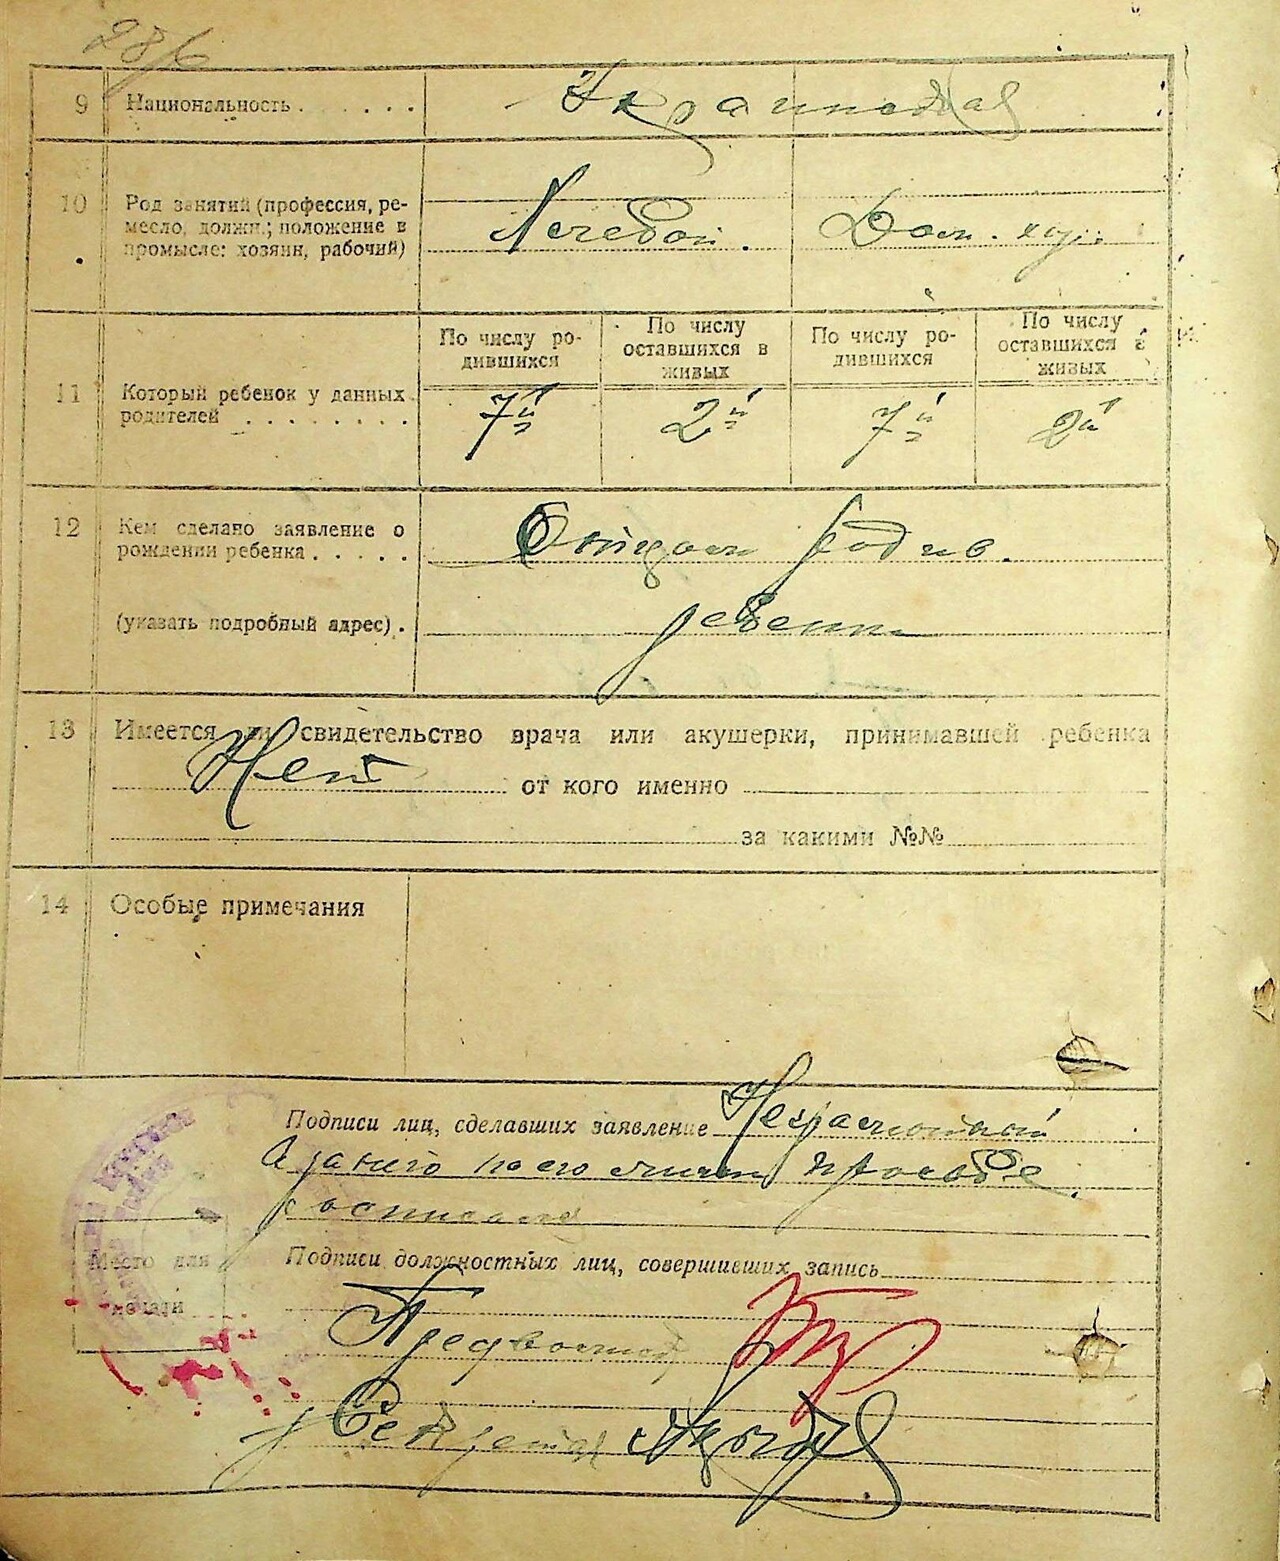 28/6
9 Национальность . . . . . . Украинская
10 Род занятий (профессия, ре-
месло, должн.; положение в
промысле: хозяин, рабочий)
Дом. хоз.
По числу ро-
дившихся
По числу
оставшихся в
живых
По числу ро-
дившихся
По числу
оставшихся в
живых
11 Который ребенок у данных
родителей . . . . . . . .
7й 2й 7й 2й
12 Кем сделано заявление о
рождении ребенка . . . . .
Отцом родив.
(указать подробный адрес) .
ребенка
13 Имеется ли свидетельство врача или акушерки, принимавшей ребенка
Нет от кого именно
за какими №№
14 Особые примечания
Подписи лиц, сделавших заявление Неграмотный
а за него по его личной просьбе
росписался
Подписи должностных лиц, совершивших запись
Место для
печати
Секретарь